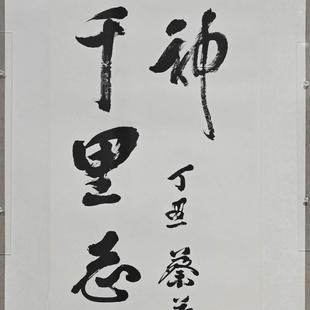 千里志
神
丁丑蔡